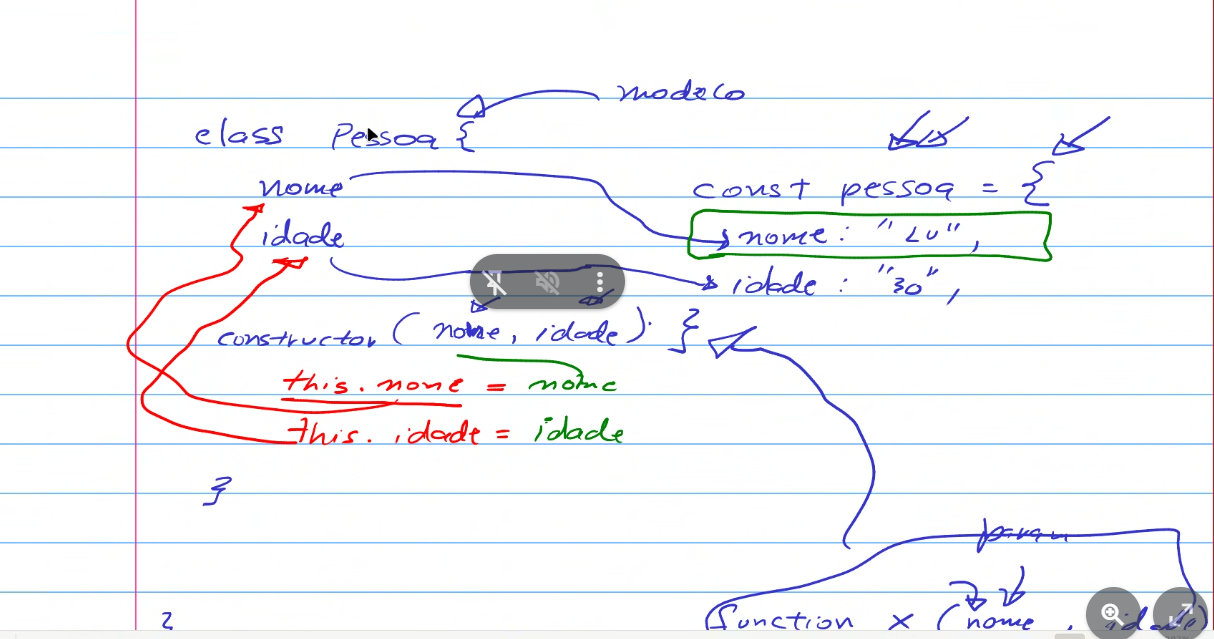 modelo
class Pessoa {
nome
idade
constructor ( nome, idade )
this.nome = nome
this.idade = idade
}
const pessoa = {
nome : "Lu",
idade : "30",
}
param
function x (nome, idade)